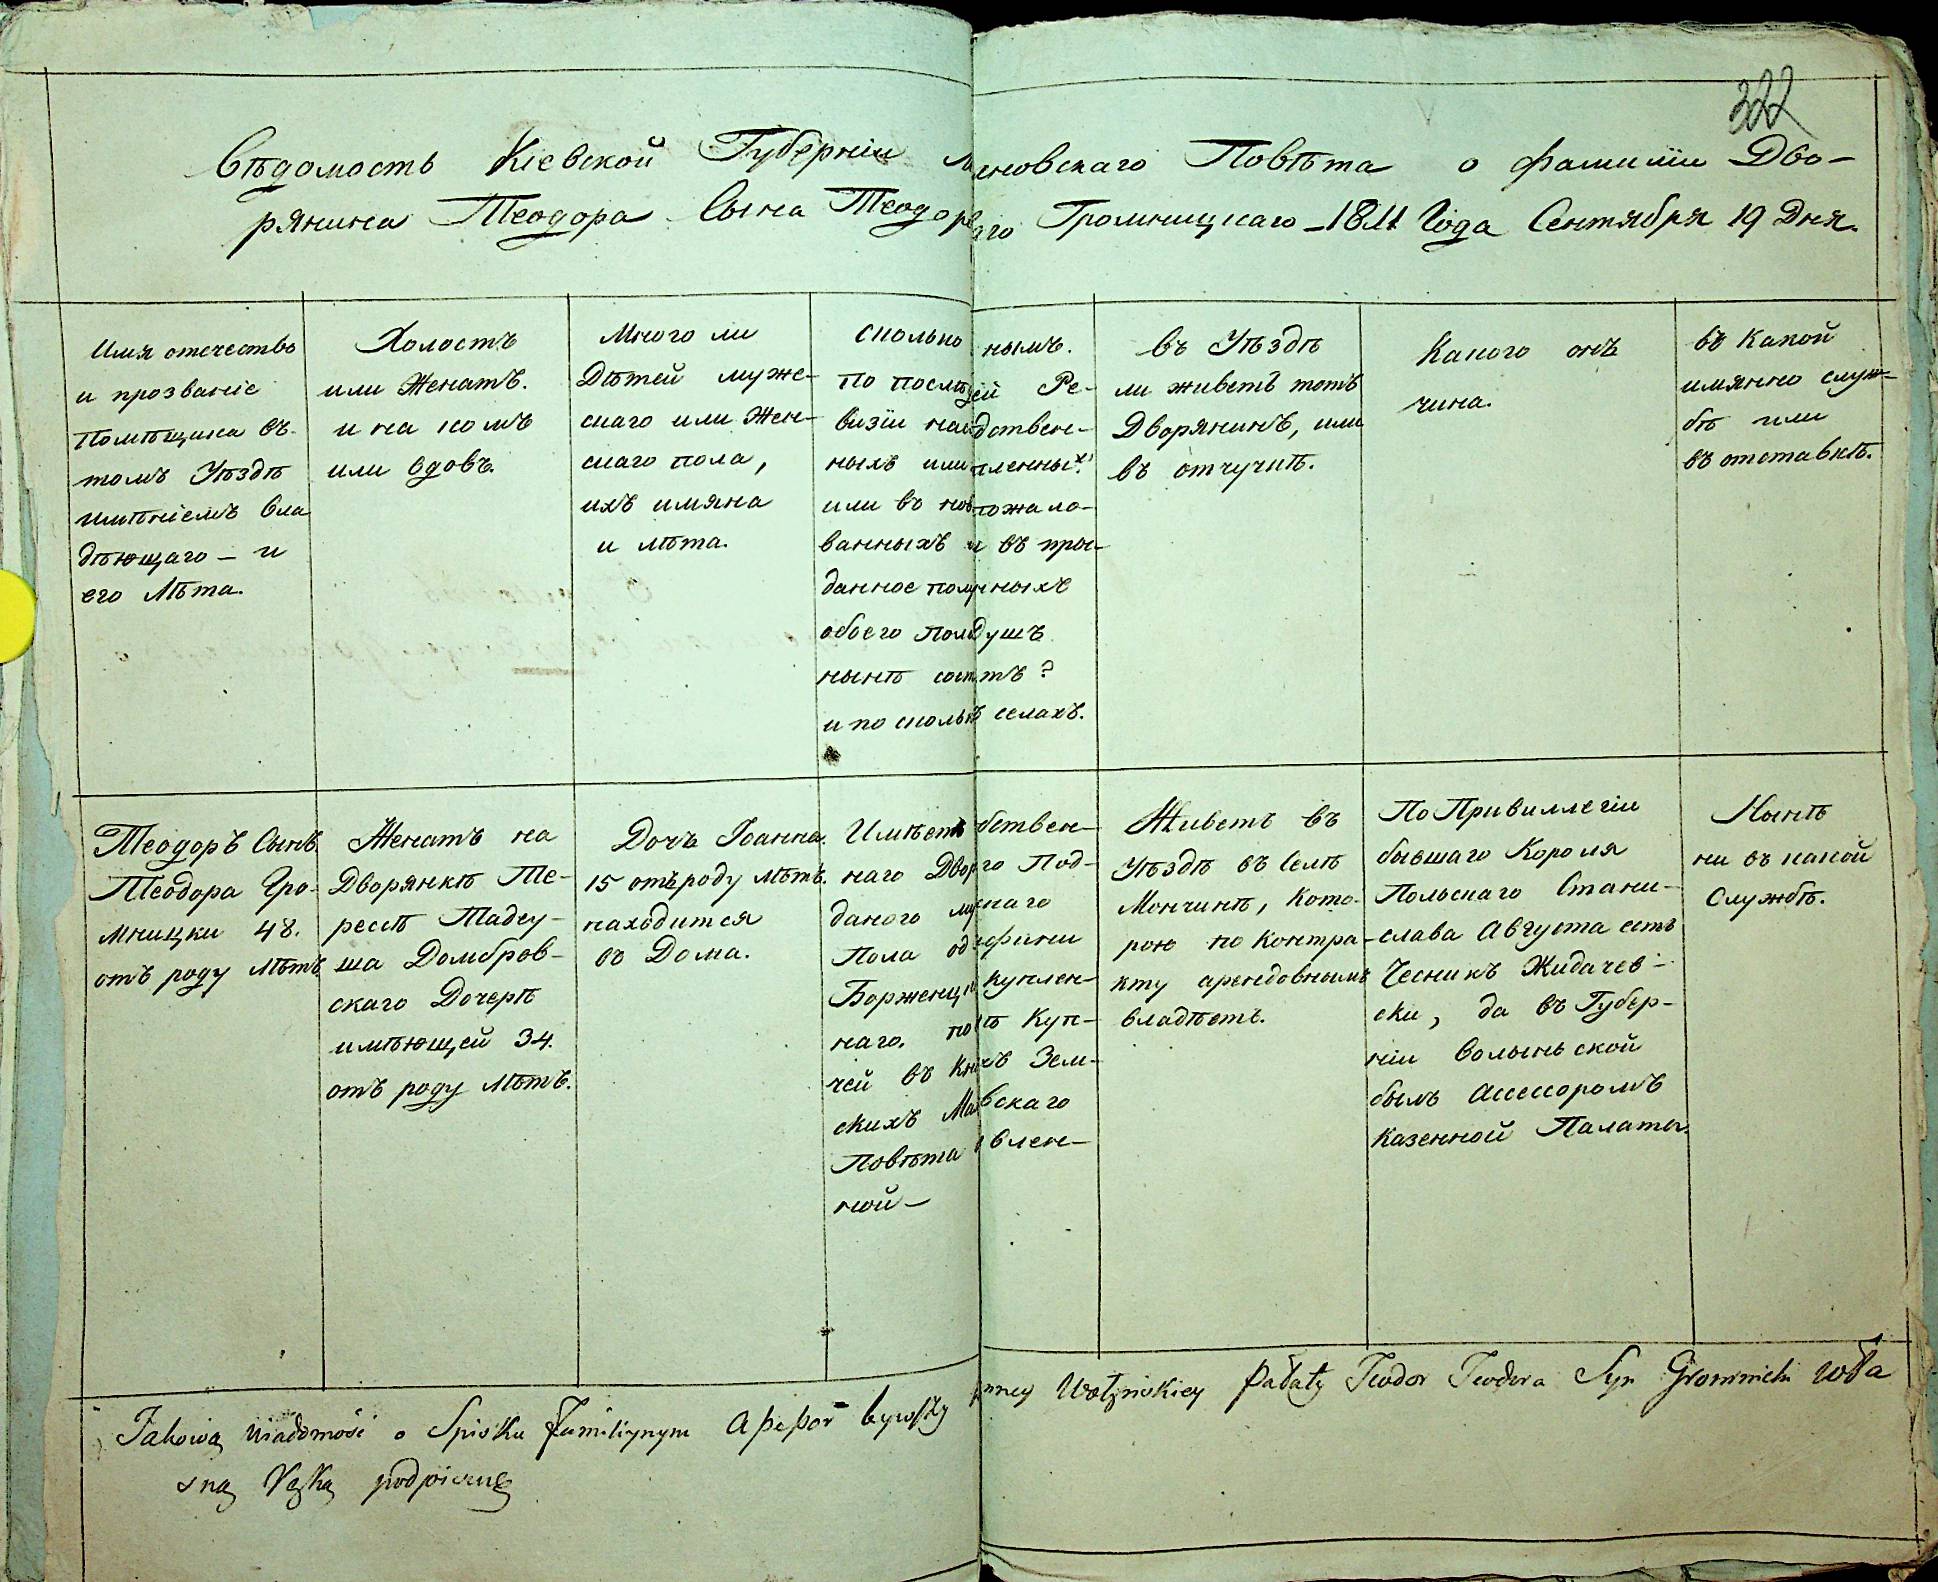 322
Вѣдомость Кіевской Губерніи новскаго Повѣта о фамиліи Дво-
рянина Теодора Сына Теодора Громницкаго 1811 Года Сентября 19 Дня.
Имя отечество
и прозваніе
Помѣщика въ
томъ Уѣздѣ
имѣніемъ вла
дѣющаго – и
его Лѣта.
Холостъ
или Женатъ.
и на комъ
или вдовъ.
Много ли
Дѣтей муже-
скаго или Жен-
скаго пола,
ихъ имяна
и лѣта.
сколько нымъ.
по послѣ ей Ре-
визіи нас дствен-
ныхъ или пленных
или въ нов пожало-
ванныхъ и въ при-
данное полу ныхъ
обоего пола душъ
нынѣ сост тъ?
и по сколь селахъ.
въ Уѣздѣ
ли живетъ тотъ
Дворянинъ, или
въ отчучнѣ.
Какого онъ
чина.
въ Какой
имянно служ-
бѣ или
въ отставкѣ.
Теодоръ Сынъ
Теодора Гро-
мницки 48.
отъ роду Лѣтъ
Женатъ на
Дворянкѣ Те-
ресѣ Тадеу-
ша Домбров-
скаго Дочерѣ
имѣющей 34.
отъ роду Лѣтъ.
Дочъ Іоанна
15 отъ роду лѣтъ.
находится
въ Дома.
Имѣетъ бствен-
наго Двор го Под-
даного му скаго
Пола од
Борженц куплен-
наго. по ѣ Куп-
чей въ Кни хъ Зем-
скихъ Мах вскаго
Повѣта влен-
ной –
Живетъ въ
Уѣздѣ въ Селѣ
Мончинѣ, Кото-
рою по Контра-
кту арендовнымъ
владѣетъ.
По Привиллегіи
бывшаго Короля
Польскаго Стани-
слава Августа естъ
Чесникъ Жидачев-
ски, да въ Губер-
ніи Волынской
былъ Ассессоромъ
Казенной Палаты.
Нынѣ
ни въ какой
Службѣ.
Takową wiadomość o Spisku familiynym Assessor bywszy nney Wołyńskiey Pałaty Teodor Teodora Syn Gromnicki
sną Ręką podpisuię